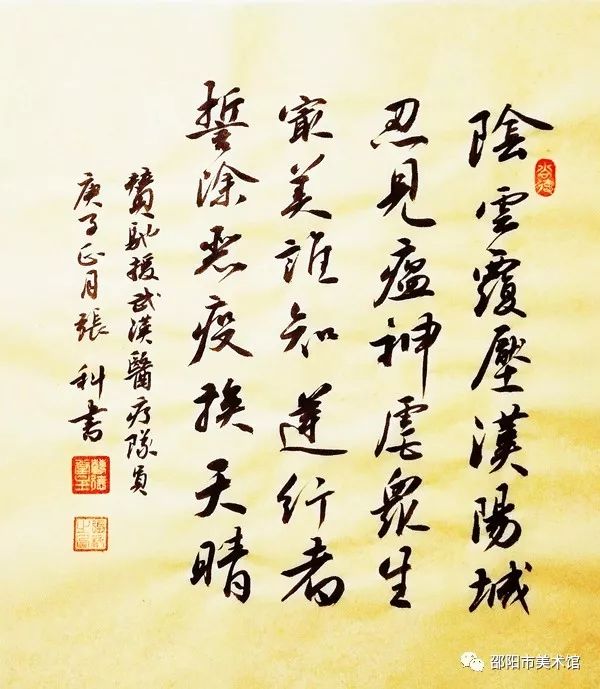 陰雲覆壓漢陽城
忍見瘟神虐眾生
最美誰知逆行者
誓除惡疫換天晴
贊馳援武漢醫疗隊員
庚子正月張科書
邵阳市美术馆